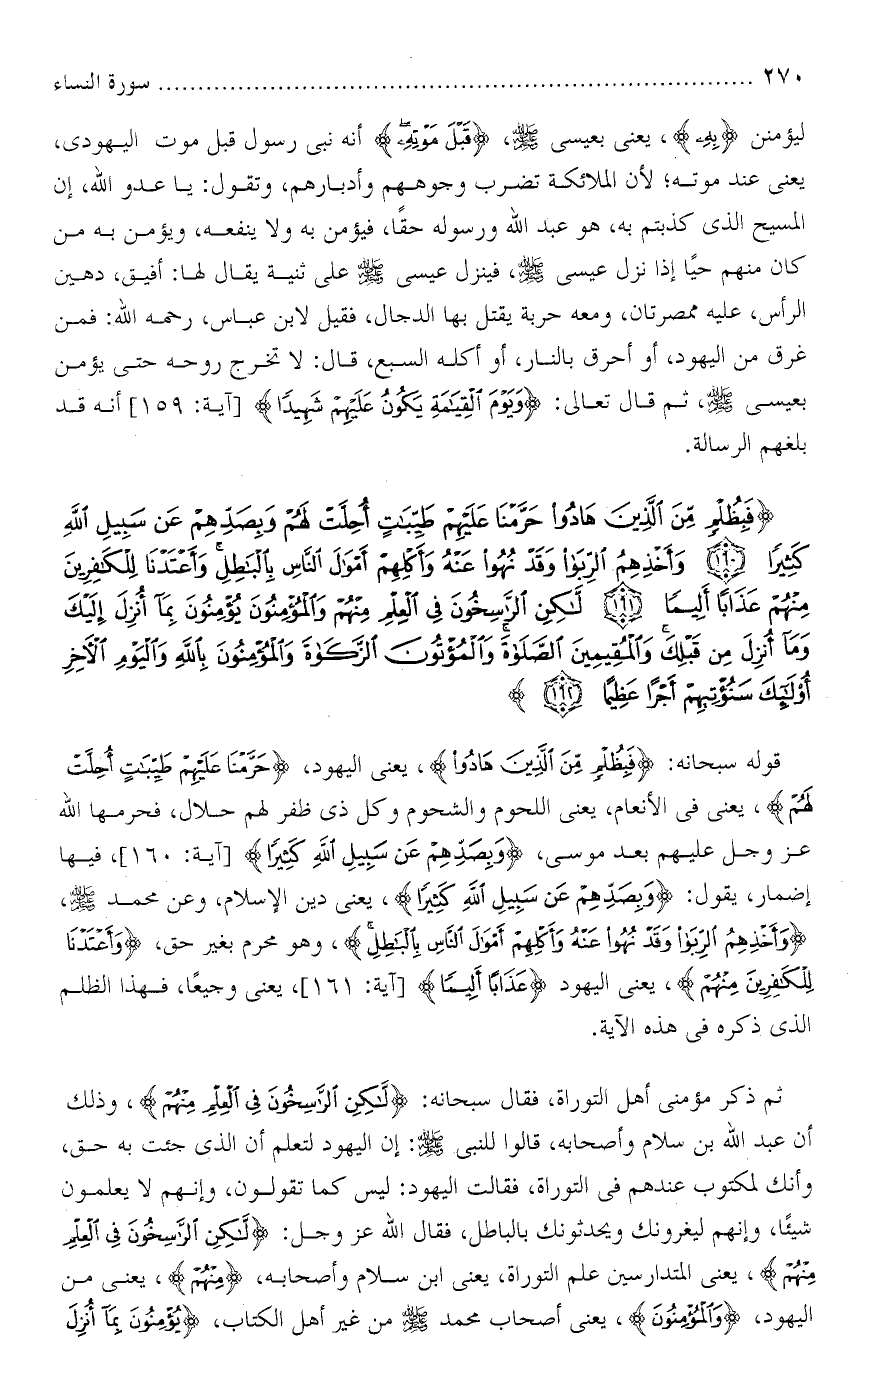 ٢٧٠ ........................................................................... سورة النساء
ليؤمنن ﴿بِهِۦ﴾، يعنى بعيسى ﷺ، ﴿قَبْلَ مَوْتِهِۦ ۖ﴾ أنه نبى رسول قبل موت اليهودى،
يعنى عند موته؛ لأن الملائكة تضرب وجوههم وأدبارهم، وتقول: يا عدو الله، إن
المسيح الذى كذبتم به، هو عبد الله ورسوله حقًا، فيؤمن به ولا ينفعه، ويؤمن به من
كان منهم حيًا إذا نزل عيسى ﷺ، فينزل عيسى ﷺ على ثنية يقال لها: أفيق، دهين
الرأس، عليه ممصرتان، ومعه حربة يقتل بها الدجال، فقيل لابن عباس، رحمه الله: فمن
غرق من اليهود، أو أحرق بالنار، أو أكله السبع، قال: لا تخرج روحه حتى يؤمن
بعيسى ﷺ، ثم قال تعالى: ﴿وَيَوْمَ ٱلْقِيَٰمَةِ يَكُونُ عَلَيْهِمْ شَهِيدًا﴾ [آية: ١٥٩] أنه قد
بلغهم الرسالة.
﴿فَبِظُلْمٍ مِّنَ ٱلَّذِينَ هَادُوا۟ حَرَّمْنَا عَلَيْهِمْ طَيِّبَٰتٍ أُحِلَّتْ لَهُمْ وَبِصَدِّهِمْ عَن سَبِيلِ ٱللَّهِ
كَثِيرًا ١٦٠ وَأَخْذِهِمُ ٱلرِّبَوٰا۟ وَقَدْ نُهُوا۟ عَنْهُ وَأَكْلِهِمْ أَمْوَٰلَ ٱلنَّاسِ بِٱلْبَٰطِلِ ۚ وَأَعْتَدْنَا لِلْكَٰفِرِينَ
مِنْهُمْ عَذَابًا أَلِيمًا ١٦١ لَّٰكِنِ ٱلرَّٰسِخُونَ فِى ٱلْعِلْمِ مِنْهُمْ وَٱلْمُؤْمِنُونَ يُؤْمِنُونَ بِمَآ أُنزِلَ إِلَيْكَ
وَمَآ أُنزِلَ مِن قَبْلِكَ ۚ وَٱلْمُقِيمِينَ ٱلصَّلَوٰةَ ۚ وَٱلْمُؤْتُونَ ٱلزَّكَوٰةَ وَٱلْمُؤْمِنُونَ بِٱللَّهِ وَٱلْيَوْمِ ٱلْءَاخِرِ
أُو۟لَٰٓئِكَ سَنُؤْتِيهِمْ أَجْرًا عَظِيمًا ١٦٢﴾
قوله سبحانه: ﴿فَبِظُلْمٍ مِّنَ ٱلَّذِينَ هَادُوا۟﴾، يعنى اليهود، ﴿حَرَّمْنَا عَلَيْهِمْ طَيِّبَٰتٍ أُحِلَّتْ
لَهُمْ﴾، يعنى فى الأنعام، يعنى اللحوم والشحوم وكل ذى ظفر لهم حلال، فحرمها الله
عز وجل عليهم بعد موسى، ﴿وَبِصَدِّهِمْ عَن سَبِيلِ ٱللَّهِ كَثِيرًا﴾ [آية: ١٦٠]، فيها
إضمار، يقول: ﴿وَبِصَدِّهِمْ عَن سَبِيلِ ٱللَّهِ كَثِيرًا﴾، يعنى دين الإسلام، وعن محمد ﷺ،
﴿وَأَخْذِهِمُ ٱلرِّبَوٰا۟ وَقَدْ نُهُوا۟ عَنْهُ وَأَكْلِهِمْ أَمْوَٰلَ ٱلنَّاسِ بِٱلْبَٰطِلِ ۚ﴾، وهو محرم بغير حق، ﴿وَأَعْتَدْنَا
لِلْكَٰفِرِينَ مِنْهُمْ﴾، يعنى اليهود ﴿عَذَابًا أَلِيمًا﴾ [آية: ١٦١]، يعنى وجيعًا، فهذا الظلم
الذى ذكره فى هذه الآية.
ثم ذكر مؤمنى أهل التوراة، فقال سبحانه: ﴿لَّٰكِنِ ٱلرَّٰسِخُونَ فِى ٱلْعِلْمِ مِنْهُمْ﴾، وذلك
أن عبد الله بن سلام وأصحابه، قالوا للنبى ﷺ: إن اليهود لتعلم أن الذى جئت به حق،
وأنك لمكتوب عندهم فى التوراة، فقالت اليهود: ليس كما تقولون، وإنهم لا يعلمون
شيئًا، وإنهم ليغرونك ويحدثونك بالباطل، فقال الله عز وجل: ﴿لَّٰكِنِ ٱلرَّٰسِخُونَ فِى ٱلْعِلْمِ
مِنْهُمْ﴾، يعنى المتدارسين علم التوراة، يعنى ابن سلام وأصحابه، ﴿مِنْهُمْ﴾، يعنى من
اليهود، ﴿وَٱلْمُؤْمِنُونَ﴾، يعنى أصحاب محمد ﷺ من غير أهل الكتاب، ﴿يُؤْمِنُونَ بِمَآ أُنزِلَ